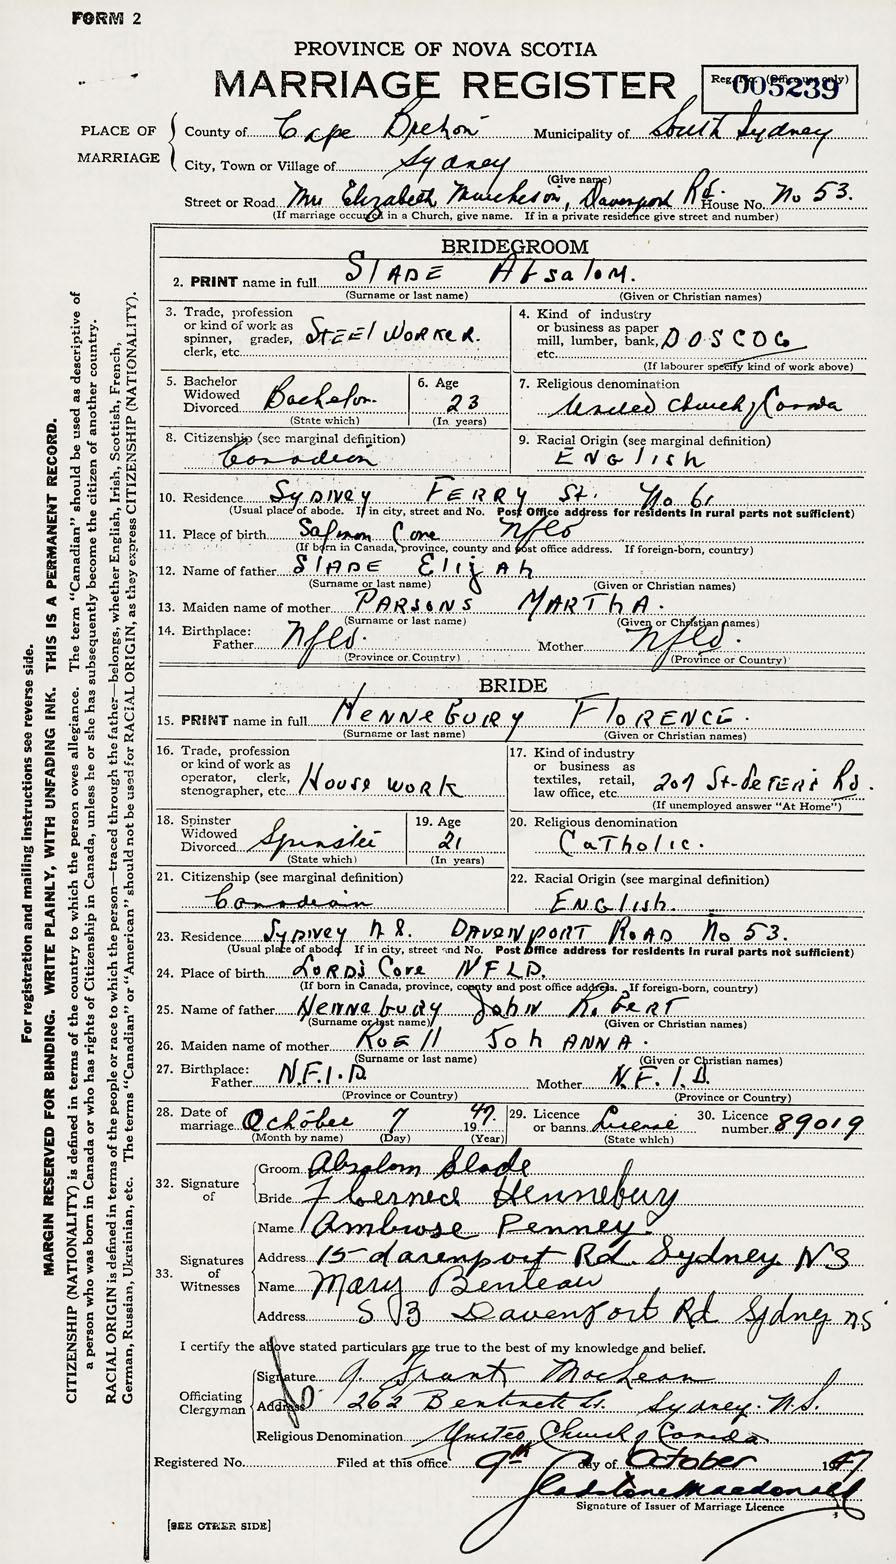 FORM 2
PROVINCE OF NOVA SCOTIA
MARRIAGE REGISTER
Reg. No. (Office use only)
005239
PLACE OF MARRIAGE
County of Cape Breton Municipality of South Sydney
City, Town or Village of Sydney
(Give name)
Street or Road Mrs Elizabeth Murcheson, Davenport Rd. House No. No 53.
(If marriage occurred in a Church, give name. If in a private residence give street and number)
BRIDEGROOM
2. PRINT name in full SLADE Absalom.
(Surname or last name) (Given or Christian names)
3. Trade, profession or kind of work as spinner, grader, clerk, etc. STEEL WORKER.
4. Kind of industry or business as paper mill, lumber, bank, etc. DOSCO
(If labourer specify kind of work above)
5. Bachelor Widowed Divorced Bachelor
(State which)
6. Age 23
(In years)
7. Religious denomination United Church of Canada
8. Citizenship (see marginal definition) Canadian
9. Racial Origin (see marginal definition) ENGlish
10. Residence SYDNEY FERRY St. No 61
(Usual place of abode. If in city, street and No. Post Office address for residents in rural parts not sufficient)
11. Place of birth Salmon Cove Nfld
(If born in Canada, province, county and post office address. If foreign-born, country)
12. Name of father SLADE Elijah
(Surname or last name) (Given or Christian names)
13. Maiden name of mother PARSONS MARTHA.
(Surname or last name) (Given or Christian names)
14. Birthplace: Father Nfld. Mother Nfld.
(Province or Country) (Province or Country)
BRIDE
15. PRINT name in full HENNEBURY FLORENCE.
(Surname or last name) (Given or Christian names)
16. Trade, profession or kind of work as operator, clerk, stenographer, etc. House work
17. Kind of industry or business as textiles, retail, law office, etc. 207 St-Peters Rd.
(If unemployed answer "At Home")
18. Spinster Widowed Divorced Spinster
(State which)
19. Age 21
(In years)
20. Religious denomination Catholic.
21. Citizenship (see marginal definition) Canadian
22. Racial Origin (see marginal definition) ENGlish.
23. Residence Sydney N.S. DAVENPORT ROAD No 53.
(Usual place of abode. If in city, street and No. Post Office address for residents in rural parts not sufficient)
24. Place of birth LORDS Cove NFLD.
(If born in Canada, province, county and post office address. If foreign-born, country)
25. Name of father Hennebury John Robert
(Surname or last name) (Given or Christian names)
26. Maiden name of mother Joh ANNA.
(Surname or last name) (Given or Christian names)
27. Birthplace: Father N.F.L.D. Mother N.F.L.D.
(Province or Country) (Province or Country)
28. Date of marriage October 7 1947.
(Month by name) (Day) (Year)
29. Licence or banns License
(State which)
30. Licence number 89019
32. Signature of
Groom Absalom Slade
Bride Hennebury
33. Signatures of Witnesses
Name Ambrose Penney
Address 15 davenport Rd. Sydney NS
Name Mary Benteau
Address 53 Davenport Rd Sydney NS
I certify the above stated particulars are true to the best of my knowledge and belief.
Officiating Clergyman
Signature Grant MacLean
Address 262 St. Sydney. N.S.
Religious Denomination United Church of Canada
Registered No. Filed at this office 9th day of October 1947
Gladstone Macdonald
Signature of Issuer of Marriage Licence
[SEE OTHER SIDE]
For registration and mailing instructions see reverse side.
MARGIN RESERVED FOR BINDING. WRITE PLAINLY, WITH UNFADING INK. THIS IS A PERMANENT RECORD.
CITIZENSHIP (NATIONALITY) is defined in terms of the country to which the person owes allegiance. The term "Canadian" should be used as descriptive of
a person who was born in Canada or who has rights of Citizenship in Canada, unless he or she has subsequently become the citizen of another country.
RACIAL ORIGIN is defined in terms of the people or race to which the person—traced through the father—belongs, whether English, Irish, Scottish, French,
German, Russian, Ukrainian, etc. The terms "Canadian" or "American" should not be used for RACIAL ORIGIN, as they express CITIZENSHIP (NATIONALITY).